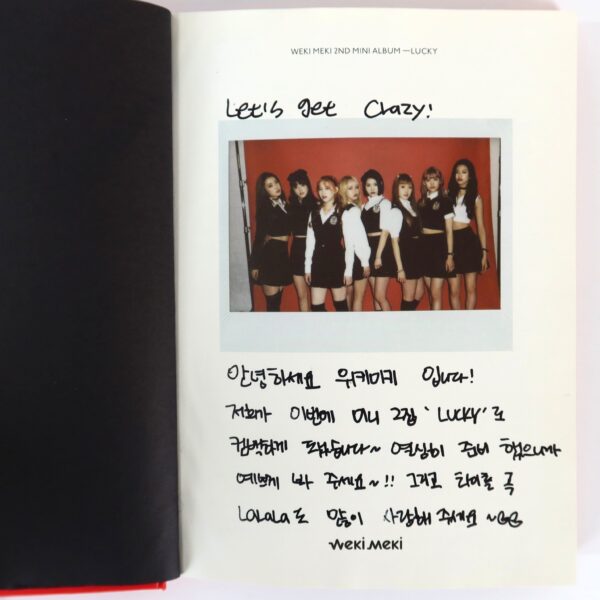 WEKI MEKI 2ND MINI ALBUM —LUCKY
Let's get Crazy!
안녕하세요 위키미키 입니다!
저희가 이번에 미니 2집 'Lucky'로
컴백하게 됐습니다~ 열심히 준비 했으니까
예쁘게 봐 주세요~!! 그리고 타이틀 곡
LaLaLa도 많이 사랑해 주세요 ~GG
weki meki